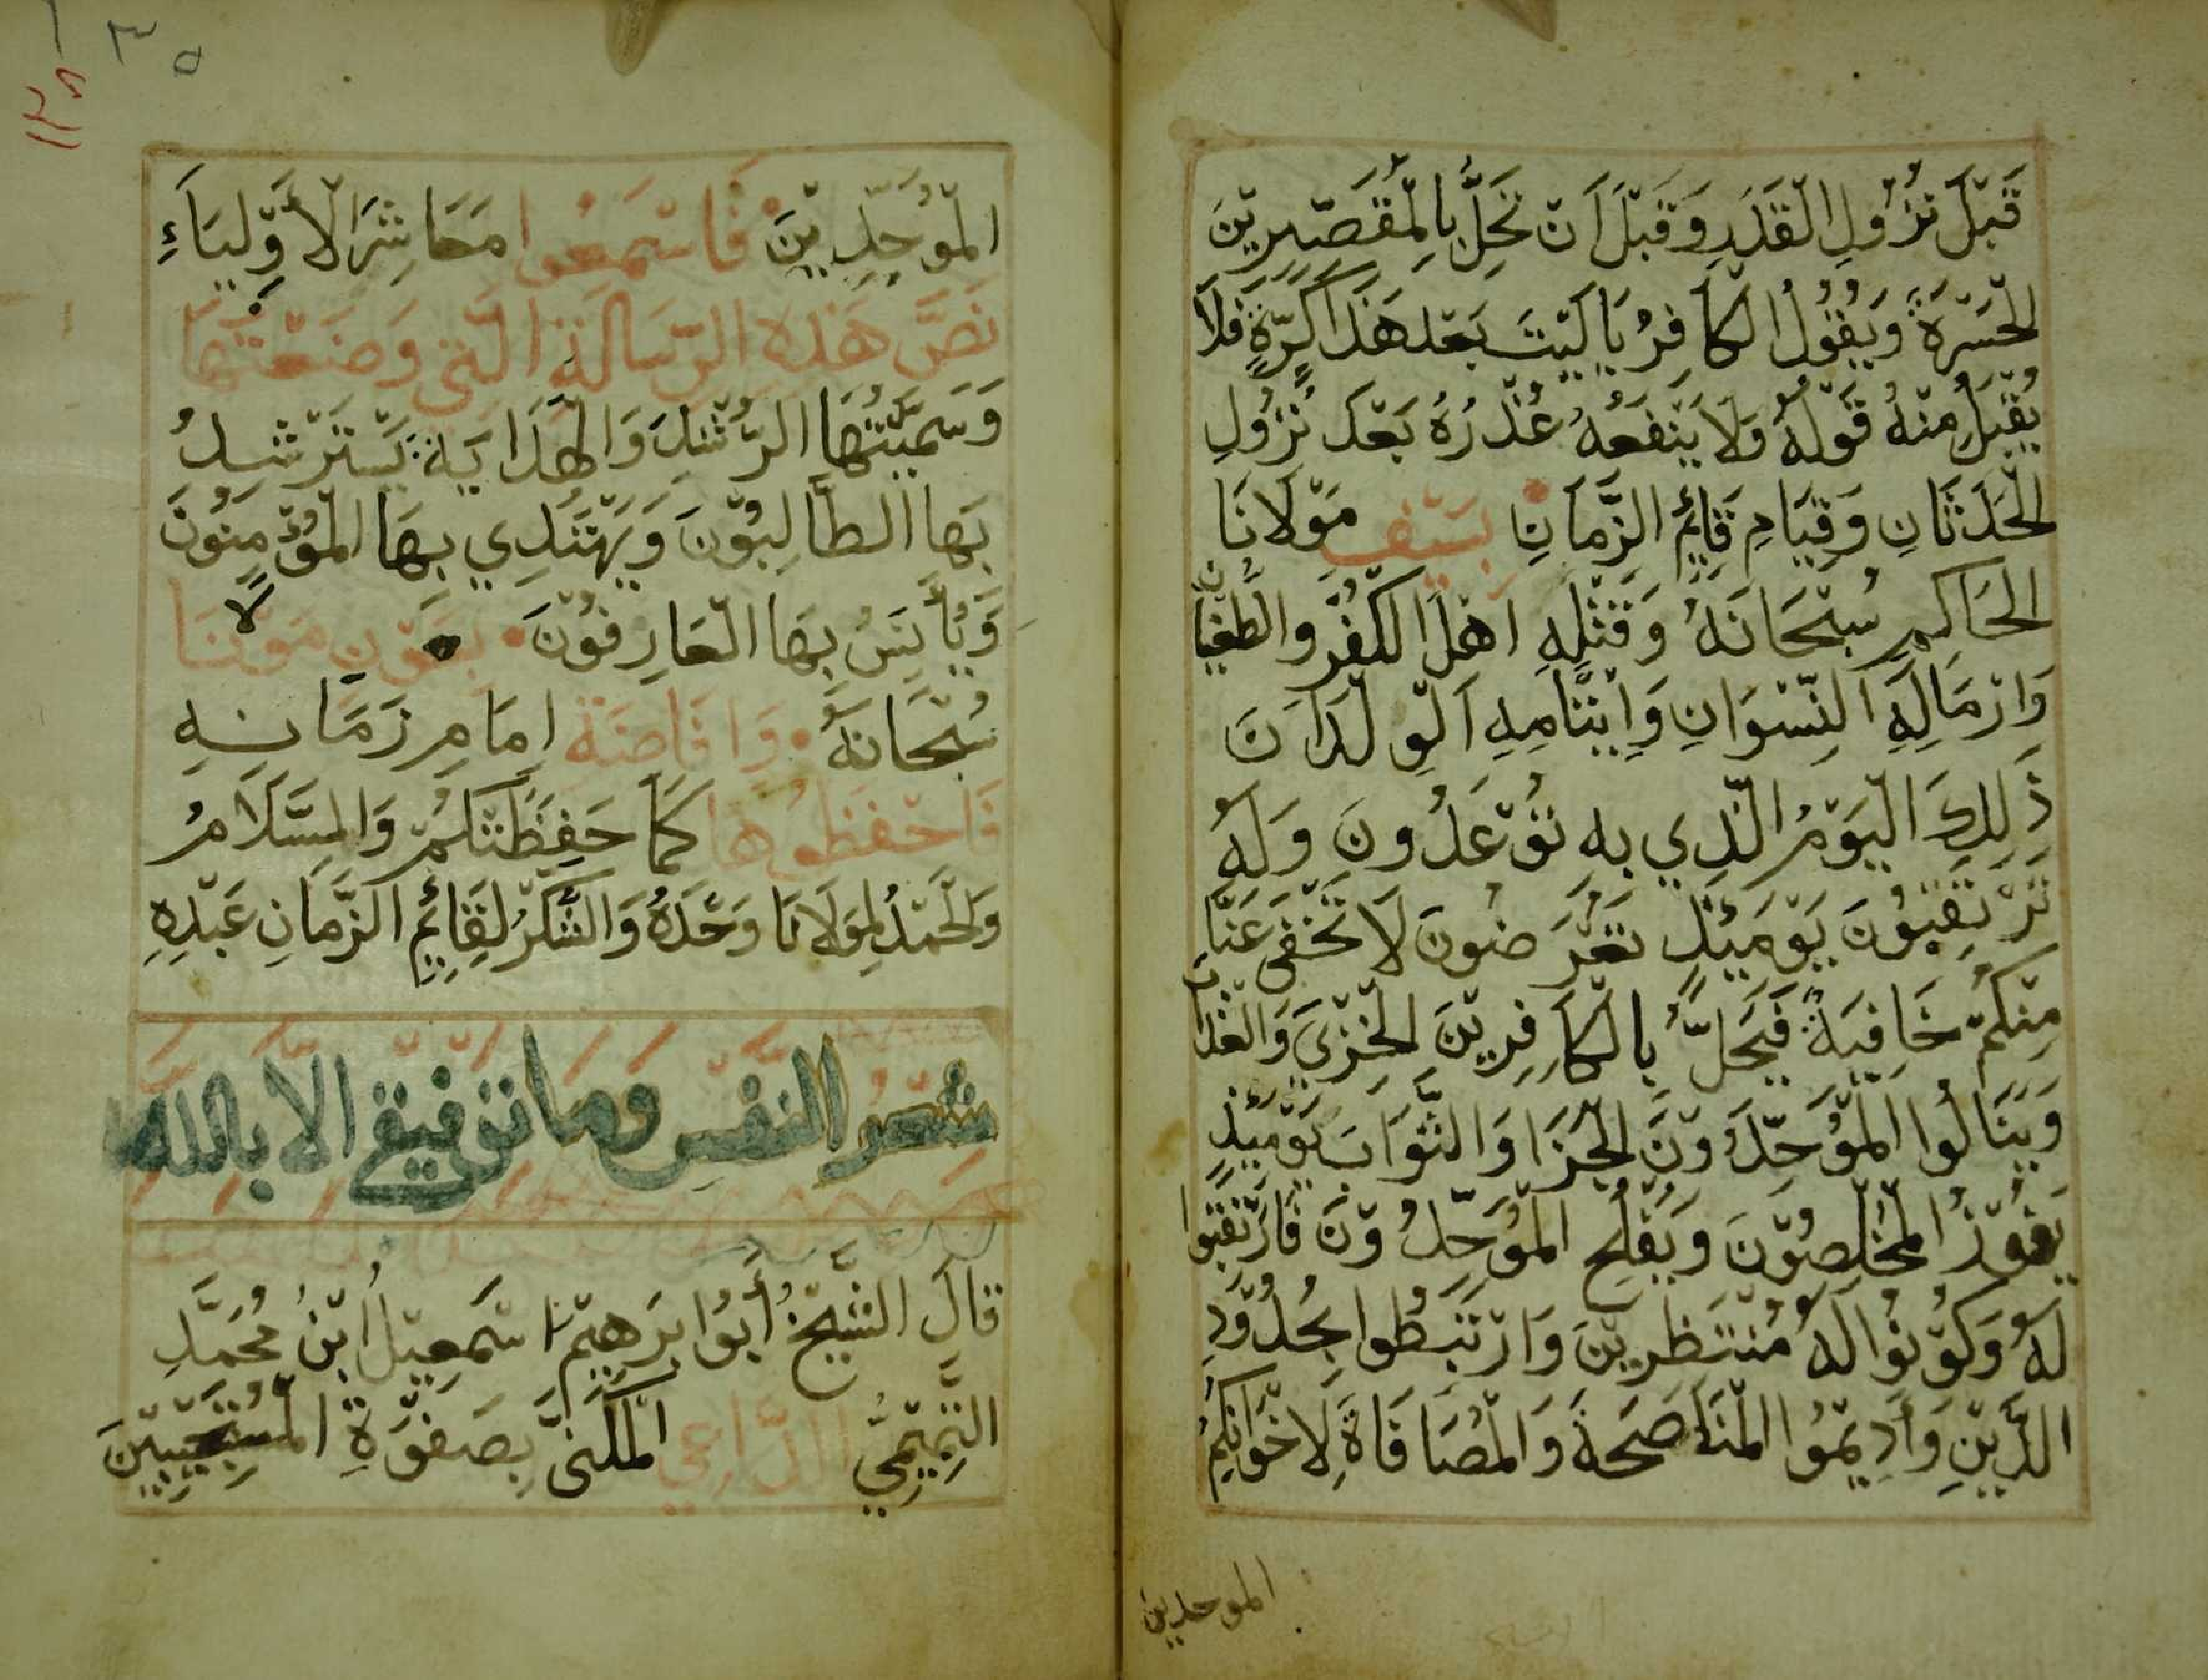 قَبْلَ نُزُولِ الْقَدَرِ وَقَبْلَ اَنْ تَحِلَّ بِالْمُقَصِّرِيْنَ
الْحَسْرَةُ وَيَقُوْلُ الكَافِرُ يَا لَيْتَ بَعْدَ هَذَا كَرَّةٍ فَلَا
يُقْبَلُ مِنْهُ قَوْلَهُ وَلَا يَنْفَعُهُ عُذْرُهُ بَعْدَ نُزُولِ
الْحَدَثَانِ وَقِيَامِ قَايِمُ الزَّمَانِ بِسَيْفِ مَوْلَانَا
الْحَاكِمِ سُبْحَانَهُ وَقَتْلِهِ اَهْلَ الكُفْرِ وَالطُّغْيَانِ
وَاِرْمَالِهِ النِّسْوَانِ وَاِيْتَامِهِ الْوِلْدَانَ
ذَلِكَ الْيَوْمُ الَّذِي بِهِ تُوْعَدُونَ وَلَهُ
تَرْتَقِبُوْنَ يَوْمَيِذٍ تُعْرَضُونَ لَا تَخْفَى عَنَّا
مِنْكُمْ خَافِيَةٌ فَيَحِلَّ بِالكَافِرِيْنَ الْخِزْيَ وَالْعَذَابَ
وَيَنَالُوا الْمُوَحِّدُوْنَ الْجَزَا وَالثَّوَابَ يَوْمَيِذٍ
يَفُوْزُ الْمُخْلِصُوْنَ وَيُفْلِحِ الْمُوَحِّدُوْنَ فَارْتَقِبُوا
لَهُ وَكُوْنُوا لَهُ مُنْتَظِرِيْنَ وَارْتَبِطُوا بِحُدُوْدِ
الدِّيْنِ وَأَدِيْمُوْا الْمُنَاصَحَةَ وَالْمُصَافَاةَ لِاخْوَانِكُمْ
الموحدين
٣٥
الْمُوَحِّدِيْنَ فَاسْمَعُوا مَعَاشِرَ الْأَوْلِيَاءِ
نَصَّ هَذِهِ الرِّسَالَةِ الَّتِي وَضَعْتُهَا
وَسَمَّيْتُهَا الرُّشْدِ وَالْهِدَايَةِ يَسْتَرْشِدُ
بِهَا الطَّالِبُوْنَ وَيَهْتَدِي بِهَا الْمُؤْمِنُوْنَ
وَيَأْنَسُ بِهَا الْعَارِفُوْنَ بِعَوْنِ مَوْلَانَا
سُبْحَانَهُ وَاِفَاضَةِ اِمَامِ زَمَانِهِ
فَاحْفَظُوْهَا كَمَا حَفِظَتْكُمْ وَالسَّلَامُ
وَالْحَمْدُ لِمَوْلَانَا وَحْدَهُ وَالشُّكْرُ لِقَايِمِ الزَّمَانِ عَبْدِهِ
شِعْرُ النَّفْسِ وَمَا تَوْفِيْقِي اِلَّا بِاللهِ
قَالَ الشَّيْخُ أَبُوْا بْرَهِيْمَ اسْمَعِيْلُ ابْنُ مُحَمَّدِ
التَّمِيْمِيُّ الدَّاعِي الْمُكَنَّى بِصَفْوَةِ الْمُسْتَجِيْبِيْنَ